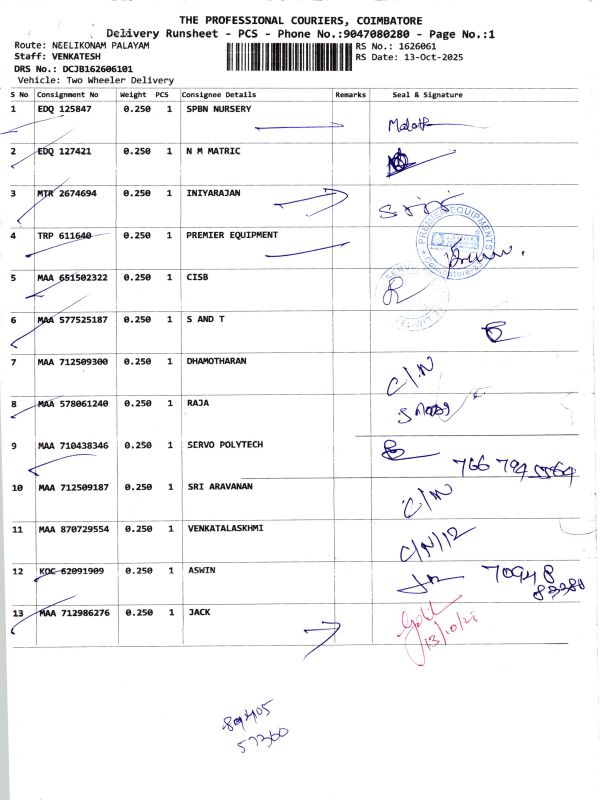 THE PROFESSIONAL COURIERS, COIMBATORE
Delivery Runsheet - PCS - Phone No.:9047080280 - Page No.:1
Route: NEELIKONAM PALAYAM
Staff: VENKATESH
DRS No.: DCJB162606101
Vehicle: Two Wheeler Delivery
RS No.: 1626061
RS Date: 13-Oct-2025
S No Consignment No Weight PCS Consignee Details Remarks Seal & Signature
1 EDQ 125847 0.250 1 SPBN NURSERY
2 EDQ 127421 0.250 1 N M MATRIC
3 MTR 2674694 0.250 1 INIYARAJAN
4 TRP 611640 0.250 1 PREMIER EQUIPMENT
PREMIER EQUIPMENTS
5 MAA 651502322 0.250 1 CISB
6 MAA 577525187 0.250 1 S AND T
7 MAA 712509300 0.250 1 DHAMOTHARAN C/N
8 MAA 578061240 0.250 1 RAJA
9 MAA 710438346 0.250 1 SERVO POLYTECH
10 MAA 712509187 0.250 1 SRI ARAVANAN C/N
11 MAA 870729554 0.250 1 VENKATALASKHMI C/N/12
12 KOC 62091909 0.250 1 ASWIN 70948
83380
13 MAA 712986276 0.250 1 JACK
57360